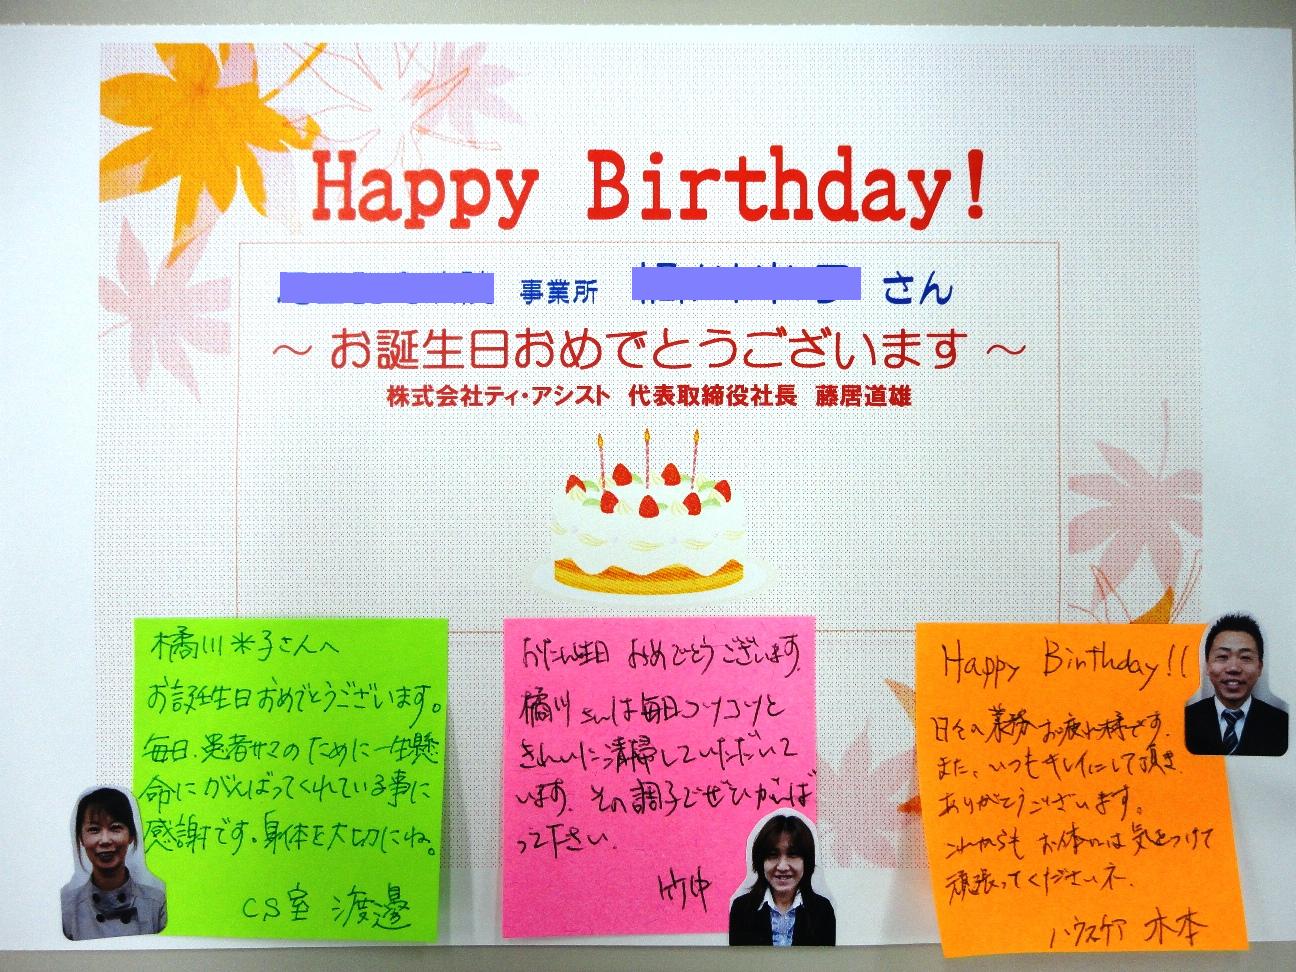 Happy Birthday!
事業所 さん
～ お誕生日おめでとうございます ～
株式会社ティ・アシスト 代表取締役社長 藤居道雄
橘川米子さんへ
お誕生日おめでとうございます。
毎日、患者サマのために一生懸
命にがんばってくれている事に
感謝です。身体を大切にね。
CS室 渡邊
おたん生日 おめでとうございます。
橘川さんは毎日コツコツと
きれいに清掃していただいて
います。その調子でぜひがんば
って下さい。
竹中
Happy Birthday!!
日々の業務お疲れ様です。
また、いつもキレイにして頂き
ありがとうございます。
これからもお体には気をつけて
頑張ってくださいネ。
ハウスケア 木本